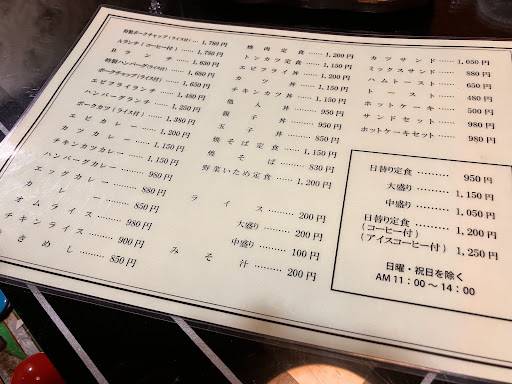 特製ポークチャップ(ライス付) …… 1,780円
Aランチ(コーヒー付) …… 1,780円
Bランチ …… 1,630円
特製ハンバーグ(ライス付) …… 1,680円
ポークチャップ(ライス付) …… 1,650円
エビフライランチ …… 1,480円
ハンバーグランチ …… 1,250円
ポークカツ(ライス付) …… 1,380円
エビカレー …… 1,200円
カツカレー …… 1,150円
チキンカツカレー …… 1,150円
ハンバーグカレー …… 980円
エッグカレー …… 880円
カレー …… 850円
オムライス …… 980円
チキンライス …… 900円
きめし …… 850円
焼肉定食 …… 1,200円
トンカツ定食 …… 1,150円
エビフライ定食 …… 1,200円
カツ丼 …… 950円
チキンカツ丼 ……
他人丼 …… 950円
親子丼 …… 950円
玉子丼 …… 850円
焼そば定食 …… 1,150円
焼そば …… 830円
野菜いため定食 …… 1,200円
ライス …… 200円
大盛り …… 200円
中盛り …… 100円
みそ汁 …… 200円
カツサンド …… 1,050円
ミックスサンド …… 880円
ハムトースト …… 650円
トースト …… 480円
ホットケーキ …… 500円
サンドセット …… 980円
ホットケーキセット …… 980円
日替り定食 ……… 950円
大盛り …… 1,150円
中盛り …… 1,050円
日替り定食 …… 1,200円
(コーヒー付)
(アイスコーヒー付) 1,250円
日曜・祝日を除く
AM 11:00〜14:00